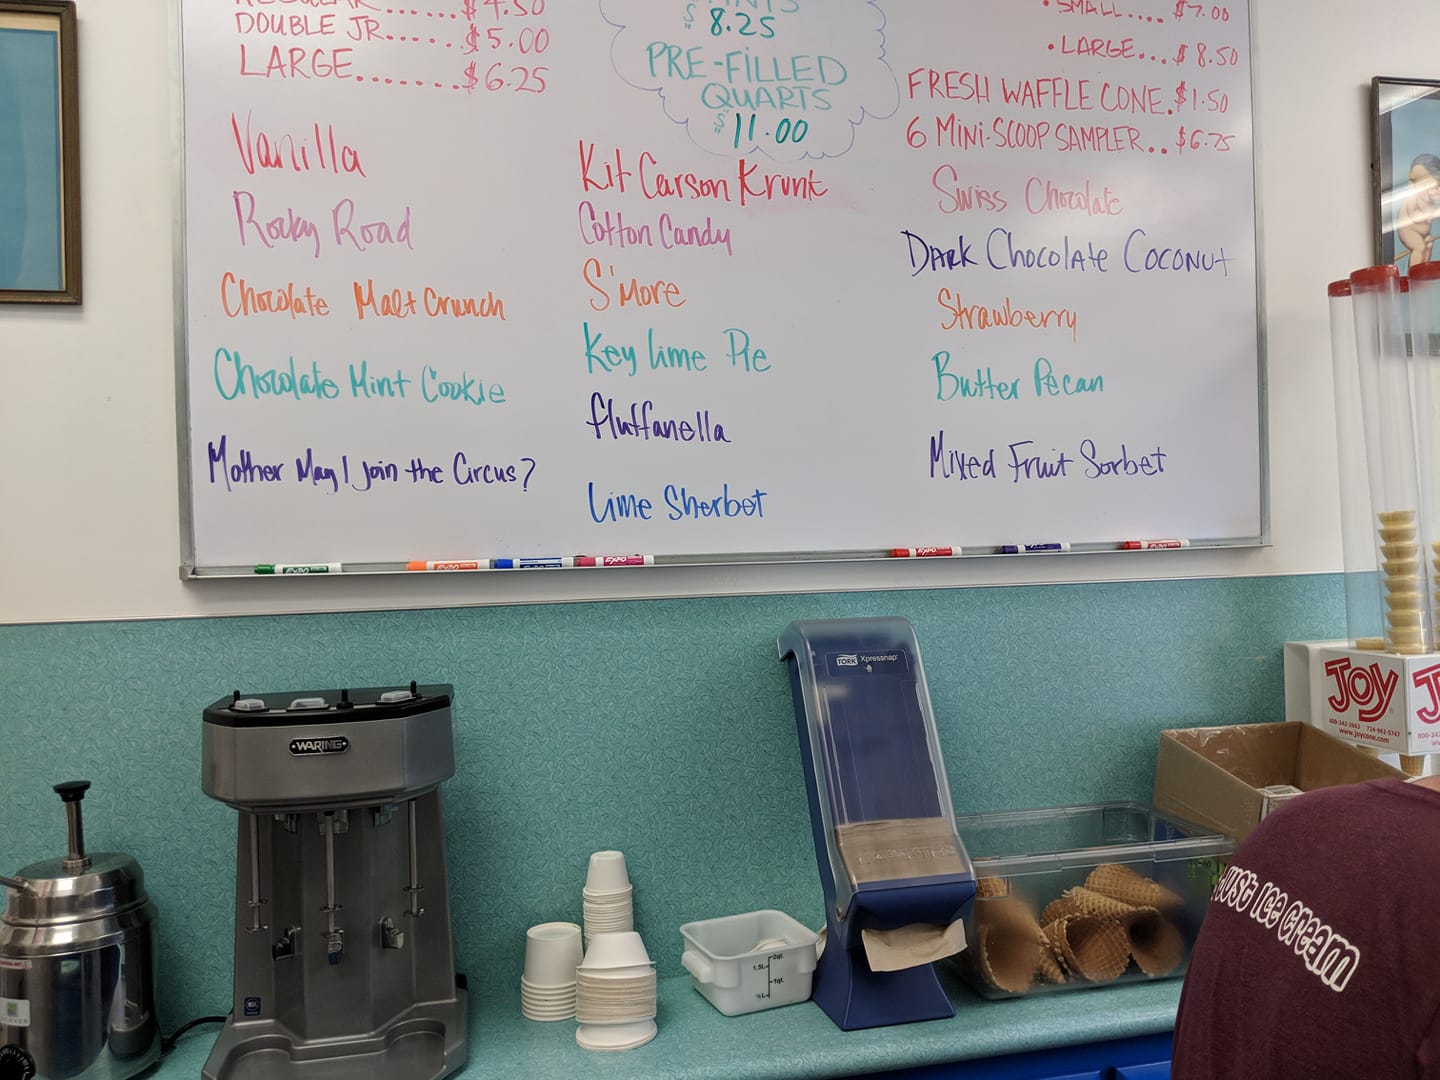 REGULAR......$4.50
DOUBLE JR......$5.00
LARGE.......$6.25
Vanilla
Rocky Road
Chocolate Malt Crunch
Chocolate Mint Cookie
Mother May I Join the Circus?
PINTS
$8.25
PRE-FILLED
QUARTS
$11.00
Kit Carson Krunk
Cotton Candy
S'more
Key lime Pie
fluffanella
Lime Sherbet
• SMALL.... $7.00
• LARGE... $8.50
FRESH WAFFLE CONE.$1.50
6 MINI-SCOOP SAMPLER..$6.75
Swiss Chocolate
Dark Chocolate Coconut
Strawberry
Butter Pecan
Mixed Fruit Sorbet
EXPO
EXPO
EXPO
EXPO
EXPO
WARING
TORK Xpressnap
JOY
800-242-2663 724-962-5747
www.joycone.com
2qt
1.5L
1qt
½L
Just Ice Cream